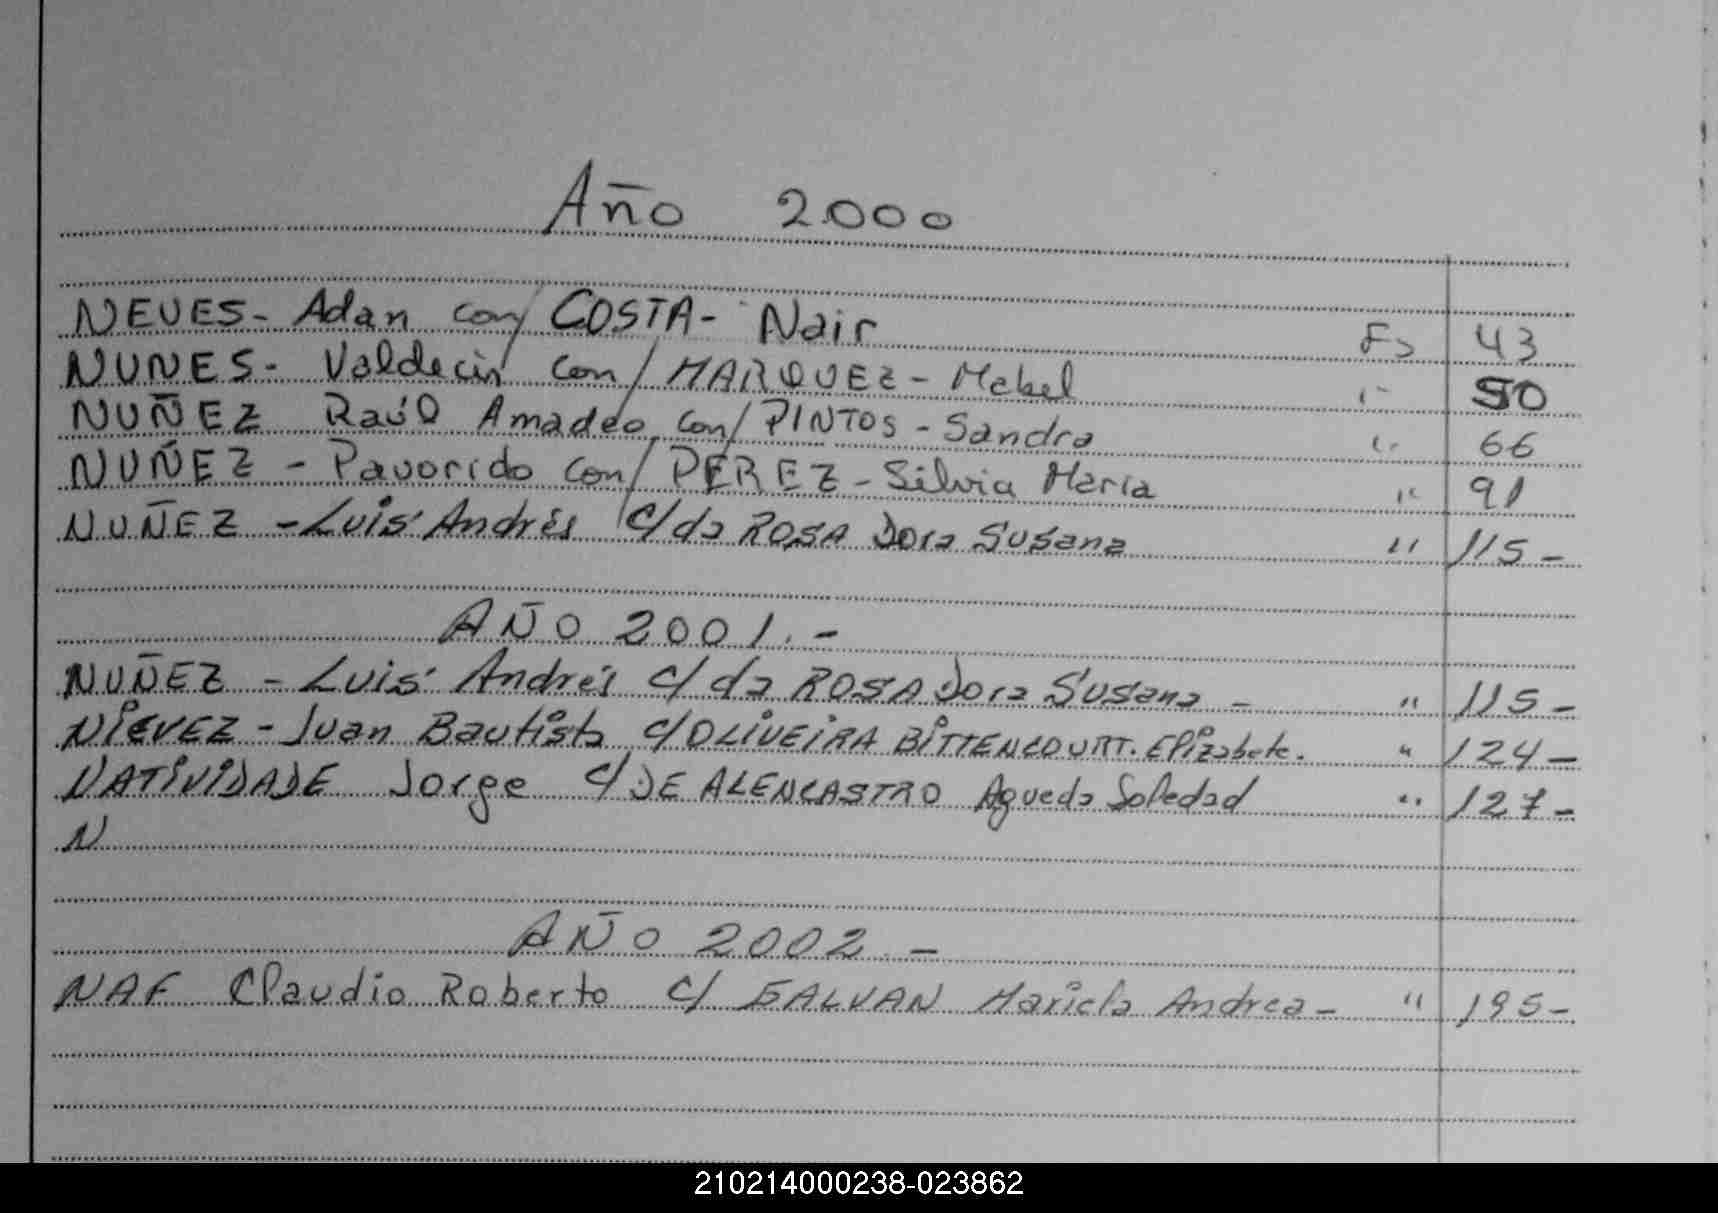 Año 2000
NEVES- Adan con/ COSTA- Nair Fs 43
NUNES- Valdecir con/ MARQUEZ- Mebel " 50
NUÑEZ Raúl Amadeo con/ PINTOS - Sandra " 66
NUÑEZ - Pavorido con/ PEREZ - Silvia Maria " 91
NUÑEZ - Luis Andrés c/ da ROSA Dora Susana " 115-
AÑO 2001.-
NUÑEZ - Luis Andrés c/ da ROSA Dora Susana - " 115-
NiEVEZ - Juan Bautista c/ OLiVEiRA BiTTENCOURT. Elizabete. " 124-
NATiViDADE Jorge c/ DE ALENCASTRO Agueda Soledad " 127-
N
AÑO 2002.-
NAF Claudio Roberto c/ GALVAN Mariela Andrea- " 195-
210214000238-023862